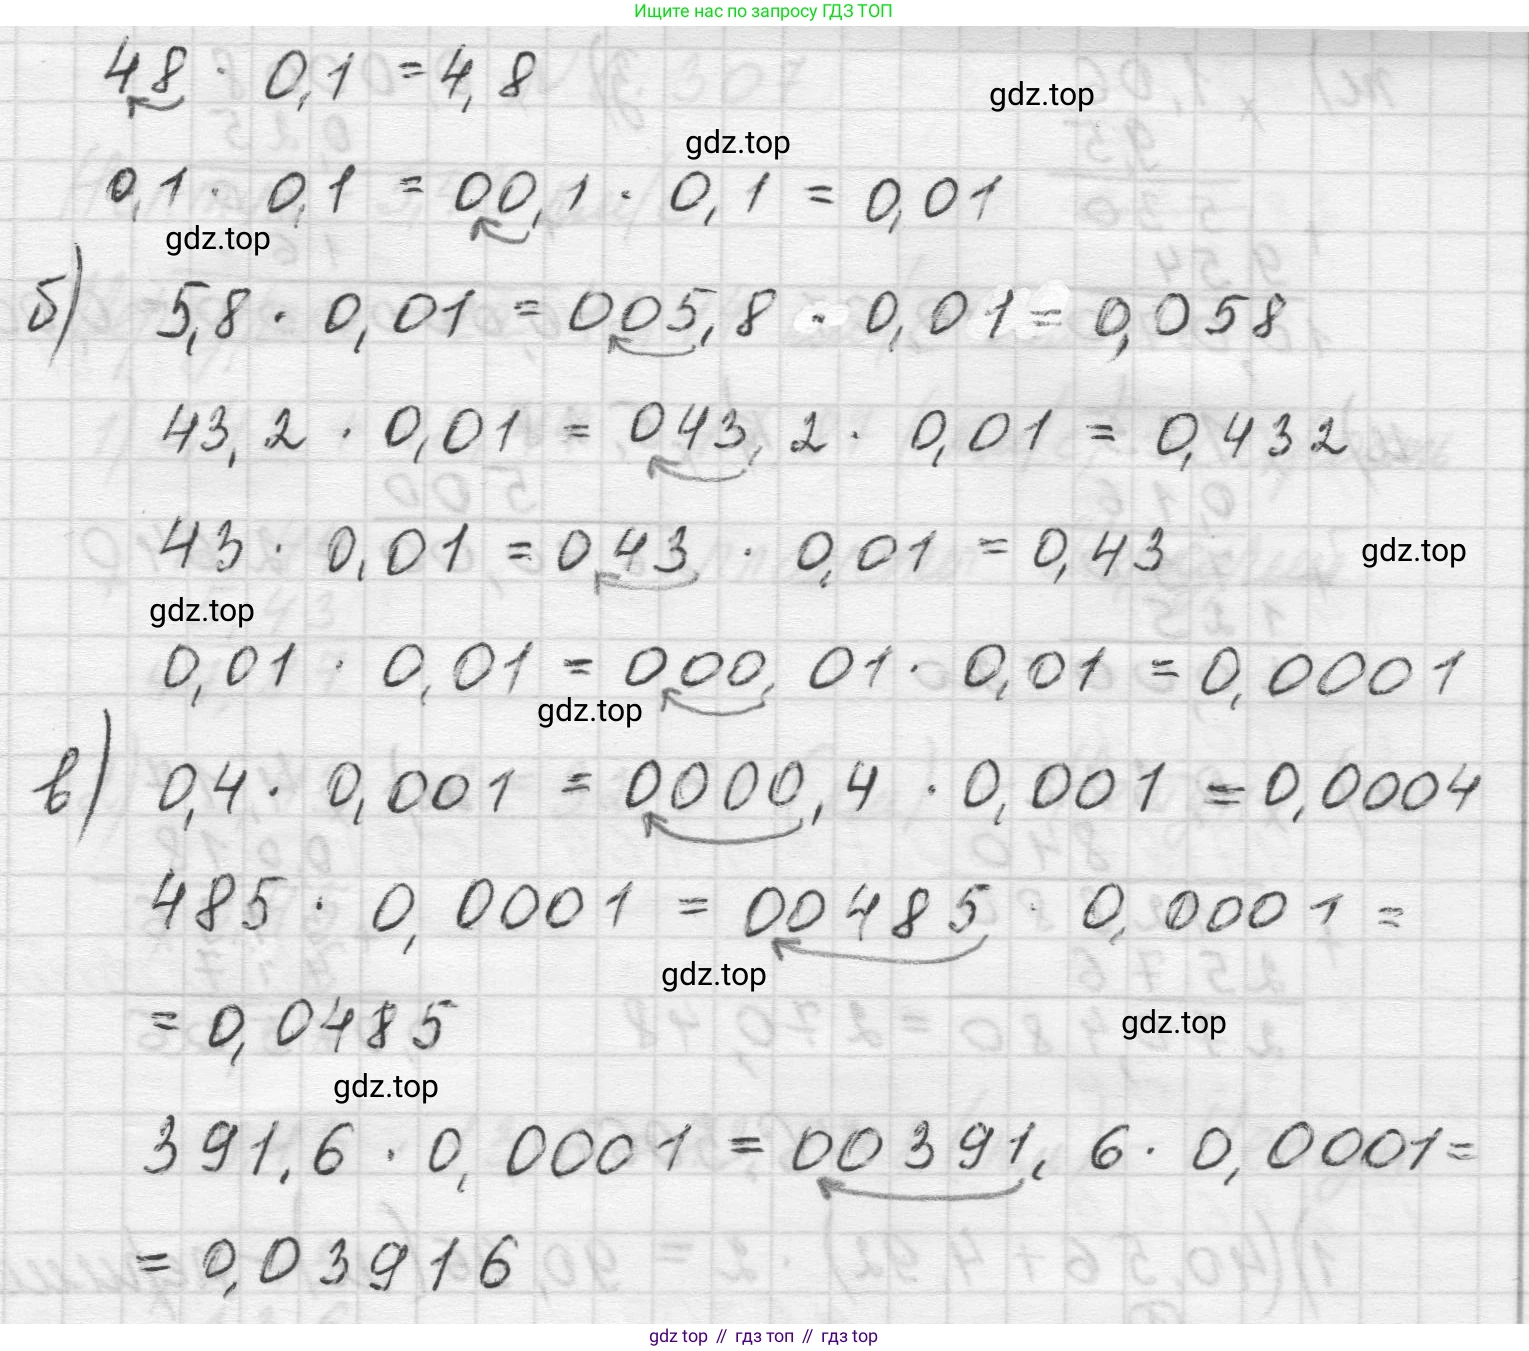 Ищите нас по запросу ГДЗ ТОП
48 · 0,1 = 4,8
gdz.top
gdz.top
0,1 · 0,1 = 00,1 · 0,1 = 0,01
gdz.top
б) 5,8 · 0,01 = 005,8 · 0,01 = 0,058
43,2 · 0,01 = 043,2 · 0,01 = 0,432
43 · 0,01 = 043 · 0,01 = 0,43
gdz.top
gdz.top
0,01 · 0,01 = 000,01 · 0,01 = 0,0001
gdz.top
в) 0,4 · 0,001 = 0000,4 · 0,001 = 0,0004
485 · 0,0001 = 00485 · 0,0001 =
gdz.top
= 0,0485
gdz.top
gdz.top
391,6 · 0,0001 = 00391,6 · 0,0001 =
= 0,03916
gdz top // гдз топ // гдз top